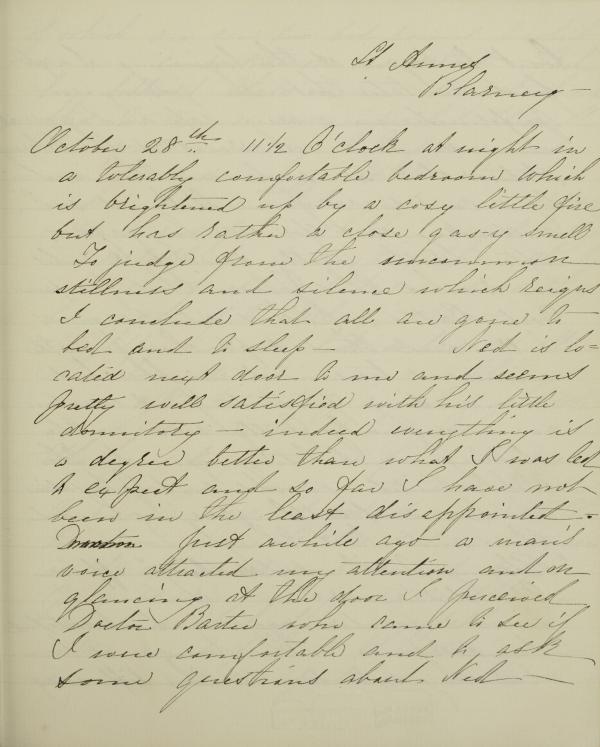 St Annes
Blarney
October 28th 11 1/2 O'clock at night in
a tolerably comfortable bedroom which
is brightened up by a cosy little fire
but has rather a close gasy smell
To judge from the uncommon
stillness and silence which reigns
I conclude that all are gone to
bed and to sleep — Ned is lo=
cated next door to me and seems
pretty well satisfied with his little
dormitory — indeed everything is
a degree better than what I was led
to expect and so far I have not
been in the least disappointed.
Just awhile ago a man's
voice attracted my attention and on
glancing at the door I perceived
Doctor Barter who came to see if
I were comfortable and to ask
some questions about Ned —